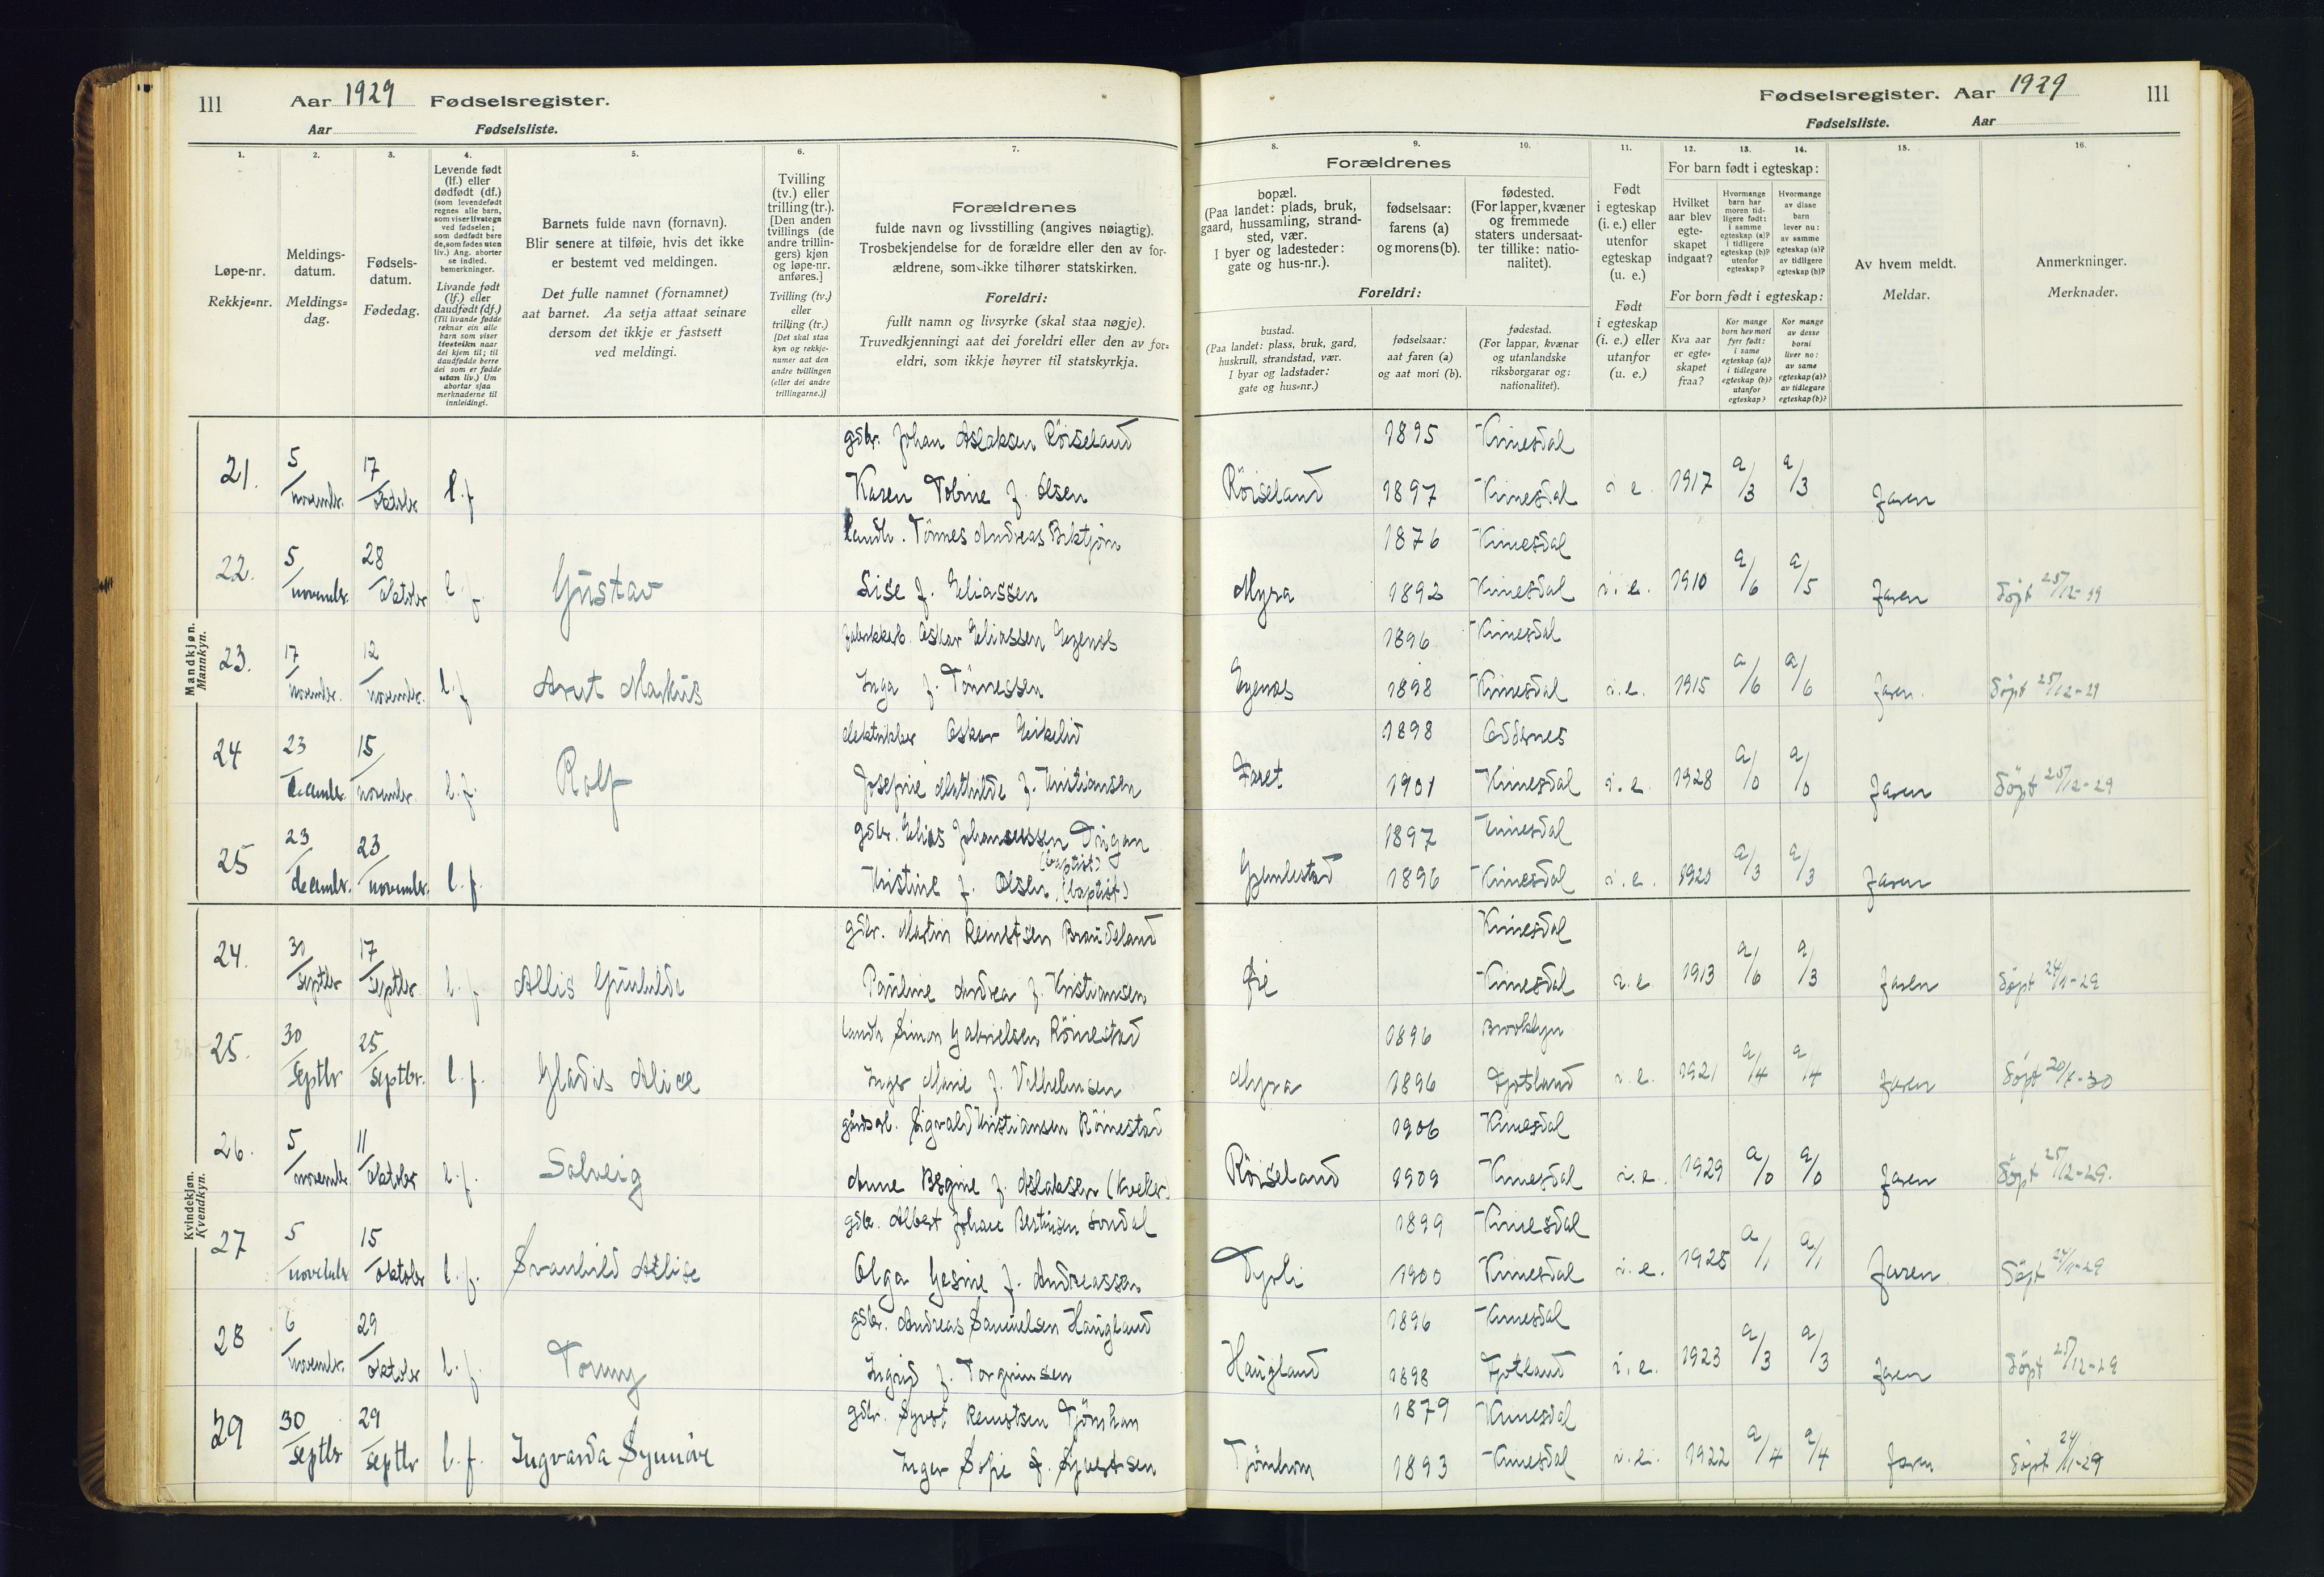 111 Aar 1929 Fødselsregister.
Aar Fødselsliste.
Fødselsregister. Aar 1929 111
Fødselsliste. Aar
1. 2. 3. 4. 5. 6. 7. 8. 9. 10. 11. 12. 13. 14. 15. 16.
Løpe-nr.
Rekkje=nr.
Meldings-
datum.
Meldings=
dag.
Fødsels-
datum.
Fødedag.
Levende født
(lf.) eller
dødfødt (df.)
(som levendefødt
regnes alle barn,
som viser livstegn
ved fødselen;
som dødfødt bare
de, som fødes uten
liv.) Ang. aborter
se indled.
bemerkninger.
Livande født
(lf.) eller
daudfødt (df.)
(Til livande fødde
reknar ein alle
barn som viser
livsteikn naar
dei kjem til; til
daudfødde berre
dei som er fødde
utan liv.) Um
abortar sjaa
merknaderne til
innleidingi.
Barnets fulde navn (fornavn).
Blir senere at tilføie, hvis det ikke
er bestemt ved meldingen.
Det fulle namnet (fornamnet)
aat barnet. Aa setja attaat seinare
dersom det ikkje er fastsett
ved meldingi.
Tvilling
(tv.) eller
trilling (tr.).
[Den anden
tvillings (de
andre trillin-
gers) kjøn
og løpe-nr.
anføres.]
Tvilling (tv.)
eller
trilling (tr.)
[Det skal staa
kyn og rekkje-
numer aat den
andre tvillingen
(eller dei andre
trillingarne.)]
Forældrenes
fulde navn og livsstilling (angives nøiagtig).
Trosbekjendelse for de forældre eller den av for-
ældrene, som ikke tilhører statskirken.
Foreldri:
fullt namn og livsyrke (skal staa nøgje).
Truvedkjenningi aat dei foreldri eller den av for=
eldri, som ikkje høyrer til statskyrkja.
Forældrenes
bopæl.
(Paa landet: plads, bruk,
gaard, hussamling, strand-
sted, vær.
I byer og ladesteder:
gate og hus-nr.).
fødselsaar:
farens (a)
og morens (b).
fødested.
(For lapper, kvæner
og fremmede
staters undersaat-
ter tillike: natio-
nalitet).
Foreldri:
bustad.
(Paa landet: plass, bruk, gard,
huskrull, strandstad, vær.
I byar og ladstader:
gate og hus=nr.)
fødselsaar:
aat faren (a)
og aat mori (b).
fødestad.
(For lappar, kvænar
og utanlandske
riksborgarar og:
nationalitet).
Født
i egteskap
(i. e.) eller
utenfor
egteskap
(u. e.)
Født
i egteskap
(i. e.) eller
utanfor
(u. e.)
For barn født i egteskap:
Hvilket
aar blev
egte-
skapet
indgaat?
Hvormange
barn har
moren tid-
ligere født:
i samme
egteskap (a)?
i tidligere
egteskap (b)?
utenfor
egteskap?
Hvormange
av disse
barn
lever nu:
av samme
egteskap (a)?
av tidligere
egteskap (b)?
For born født i egteskap:
Kva aar
er egte=
skapet
fraa?
Kor mange
born hev mori
fyrr født:
i same
egteskap (a)?
i tidlegare
egteskap (b)?
utanfor
egteskap?
Kor mange
av desse
borni
liver no:
av same
egteskap (a)?
av tidlegare
egteskap (b)?
Av hvem meldt.
Meldar.
Anmerkninger.
Merknader.
Mandkjøn.
Mannkyn.
gdbr. Johan Aslaksen Röiseland 1895 Kvinesdal
21. 5/november. 17/oktober l. f. Karen Tobine f. Olsen Röiseland 1897 Kvinesdal i. e. 1917 a/3 a/3 Faren
landh. Tönnes Andreas 1876 Kvinesdal
22. 5/november. 28/oktober l. f. Gustav Lise f. Eliassen Myra 1892 Kvinesdal i. e. 1910 a/6 a/5 Faren döpt 25/12-29
Oskar Eliassen Egenes 1896 Kvinesdal
23. 17/november. 12/november. l. f. Arnt Markus Inga f. Tönnessen Egenes 1898 Kvinesdal i. e. 1915 a/6 a/6 Faren. döpt 25/12-29
elektrikker Oskar Eikelid 1898 Oddernes
24 23/december. 15/november l. f. Rolf Josefine Mathilde f. Kristiansen Faret 1901 Kvinesdal i. e. 1928 a/0 a/0 Faren döpt 25/12-29
gdbr. Elias Johannessen 1897 Kvinesdal
(baptist)
25 23/december. 23/november. l. f. Kristine f. Olsen (baptist) 1896 Kvinesdal i. e. a/3 a/3 Faren
Kvindekjøn.
Kvendkyn.
gdbr. Martin Reinertsen Kvinesdal
24. 30/septbr 17/septbr. l. f. Allis Gunhilde Pauline Andrea f. Kristiansen Øie Kvinesdal i. e. 1913 a/6 a/3 Faren döpt 24/11-29
landh Simon Gabrielsen Röinestad 1896 Brooklyn
25. 30/septbr 25/septbr. l. f. Gladis Alice Inger Marie f. Vilhelmsen Myra 1896 Fjotland i. e. 1921 a/4 a/4 Faren
Sigvald Kristiansen Röinestad 1906 Kvinesdal
26. 5/november 11/oktober l. f. Solveig Anne f. Aslaksen (kveker) Röiseland 1909 Kvinesdal i. e. 1929 a/0 a/0 Faren döpt 25/12-29.
gdbr. Albert Johan Berntsen 1899 Kvinesdal
27 5/november 15/oktober l. f. Svanhild Olga Gesine f. Andreassen 1900 Kvinesdal i. e. 1925 a/1 a/1 Faren. döpt 24/11-29
gdbr. Andreas Samuelsen Haugland 1896 Kvinesdal
28 6/november. 29/oktober l. f. Tonny Ingrid f. Torgrimsen Haugland 1898 Fjotland i. e. 1923 a/3 a/3 Faren döpt 25/12-29
gdbr. Syvert Reinertsen Tjömhom 1879 Kvinesdal
29 30/septbr 29/septbr l. f. Ingvarda Synnöve Inger Sofie f. Syvertsen Tjömhom 1893 Kvinesdal i. e. 1922 a/4 a/4 Faren döpt 24/11-29